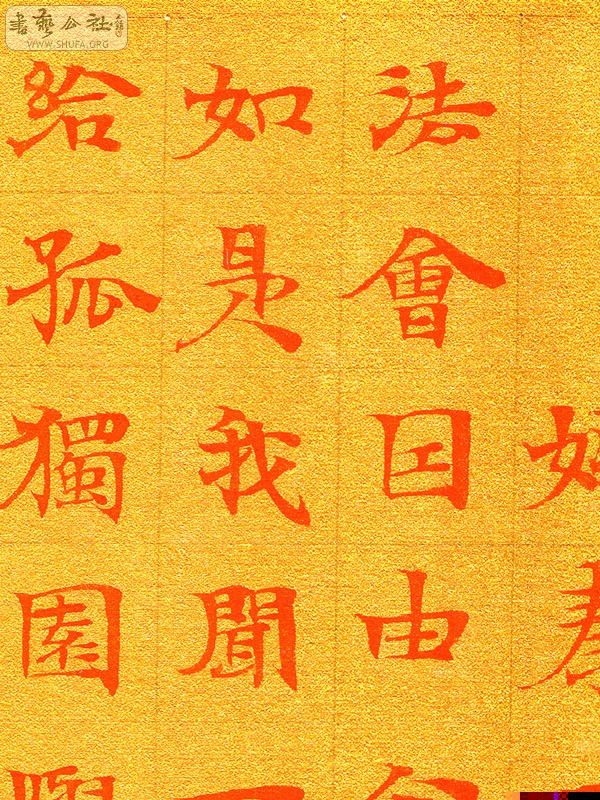 書藝公社
WWW.SHUFA.ORG
法會因由
如是我聞
給孤獨園